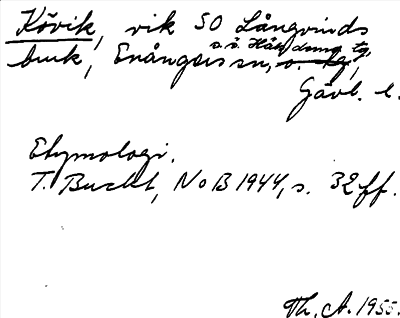 Kövik, vik SO Långvinds
bruk, Enångers sn,
Gävl. l.
Etymologi.
T. Bucht, NoB 1944, s. 32 ff.
Th. A. 1955.